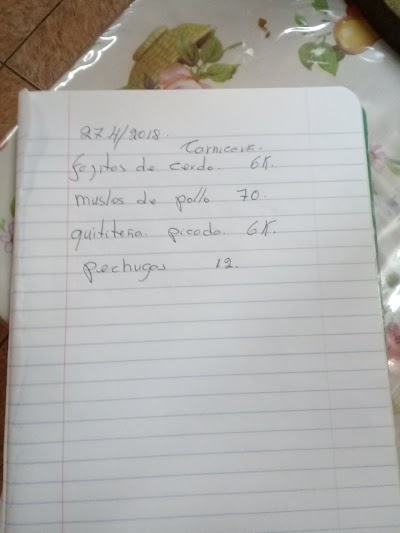 27 4/2018.
Carnicera.
fajitas de cerdo. 6K.
muslos de pollo 70.
quititeña. picada. 6K.
pechugas 12.